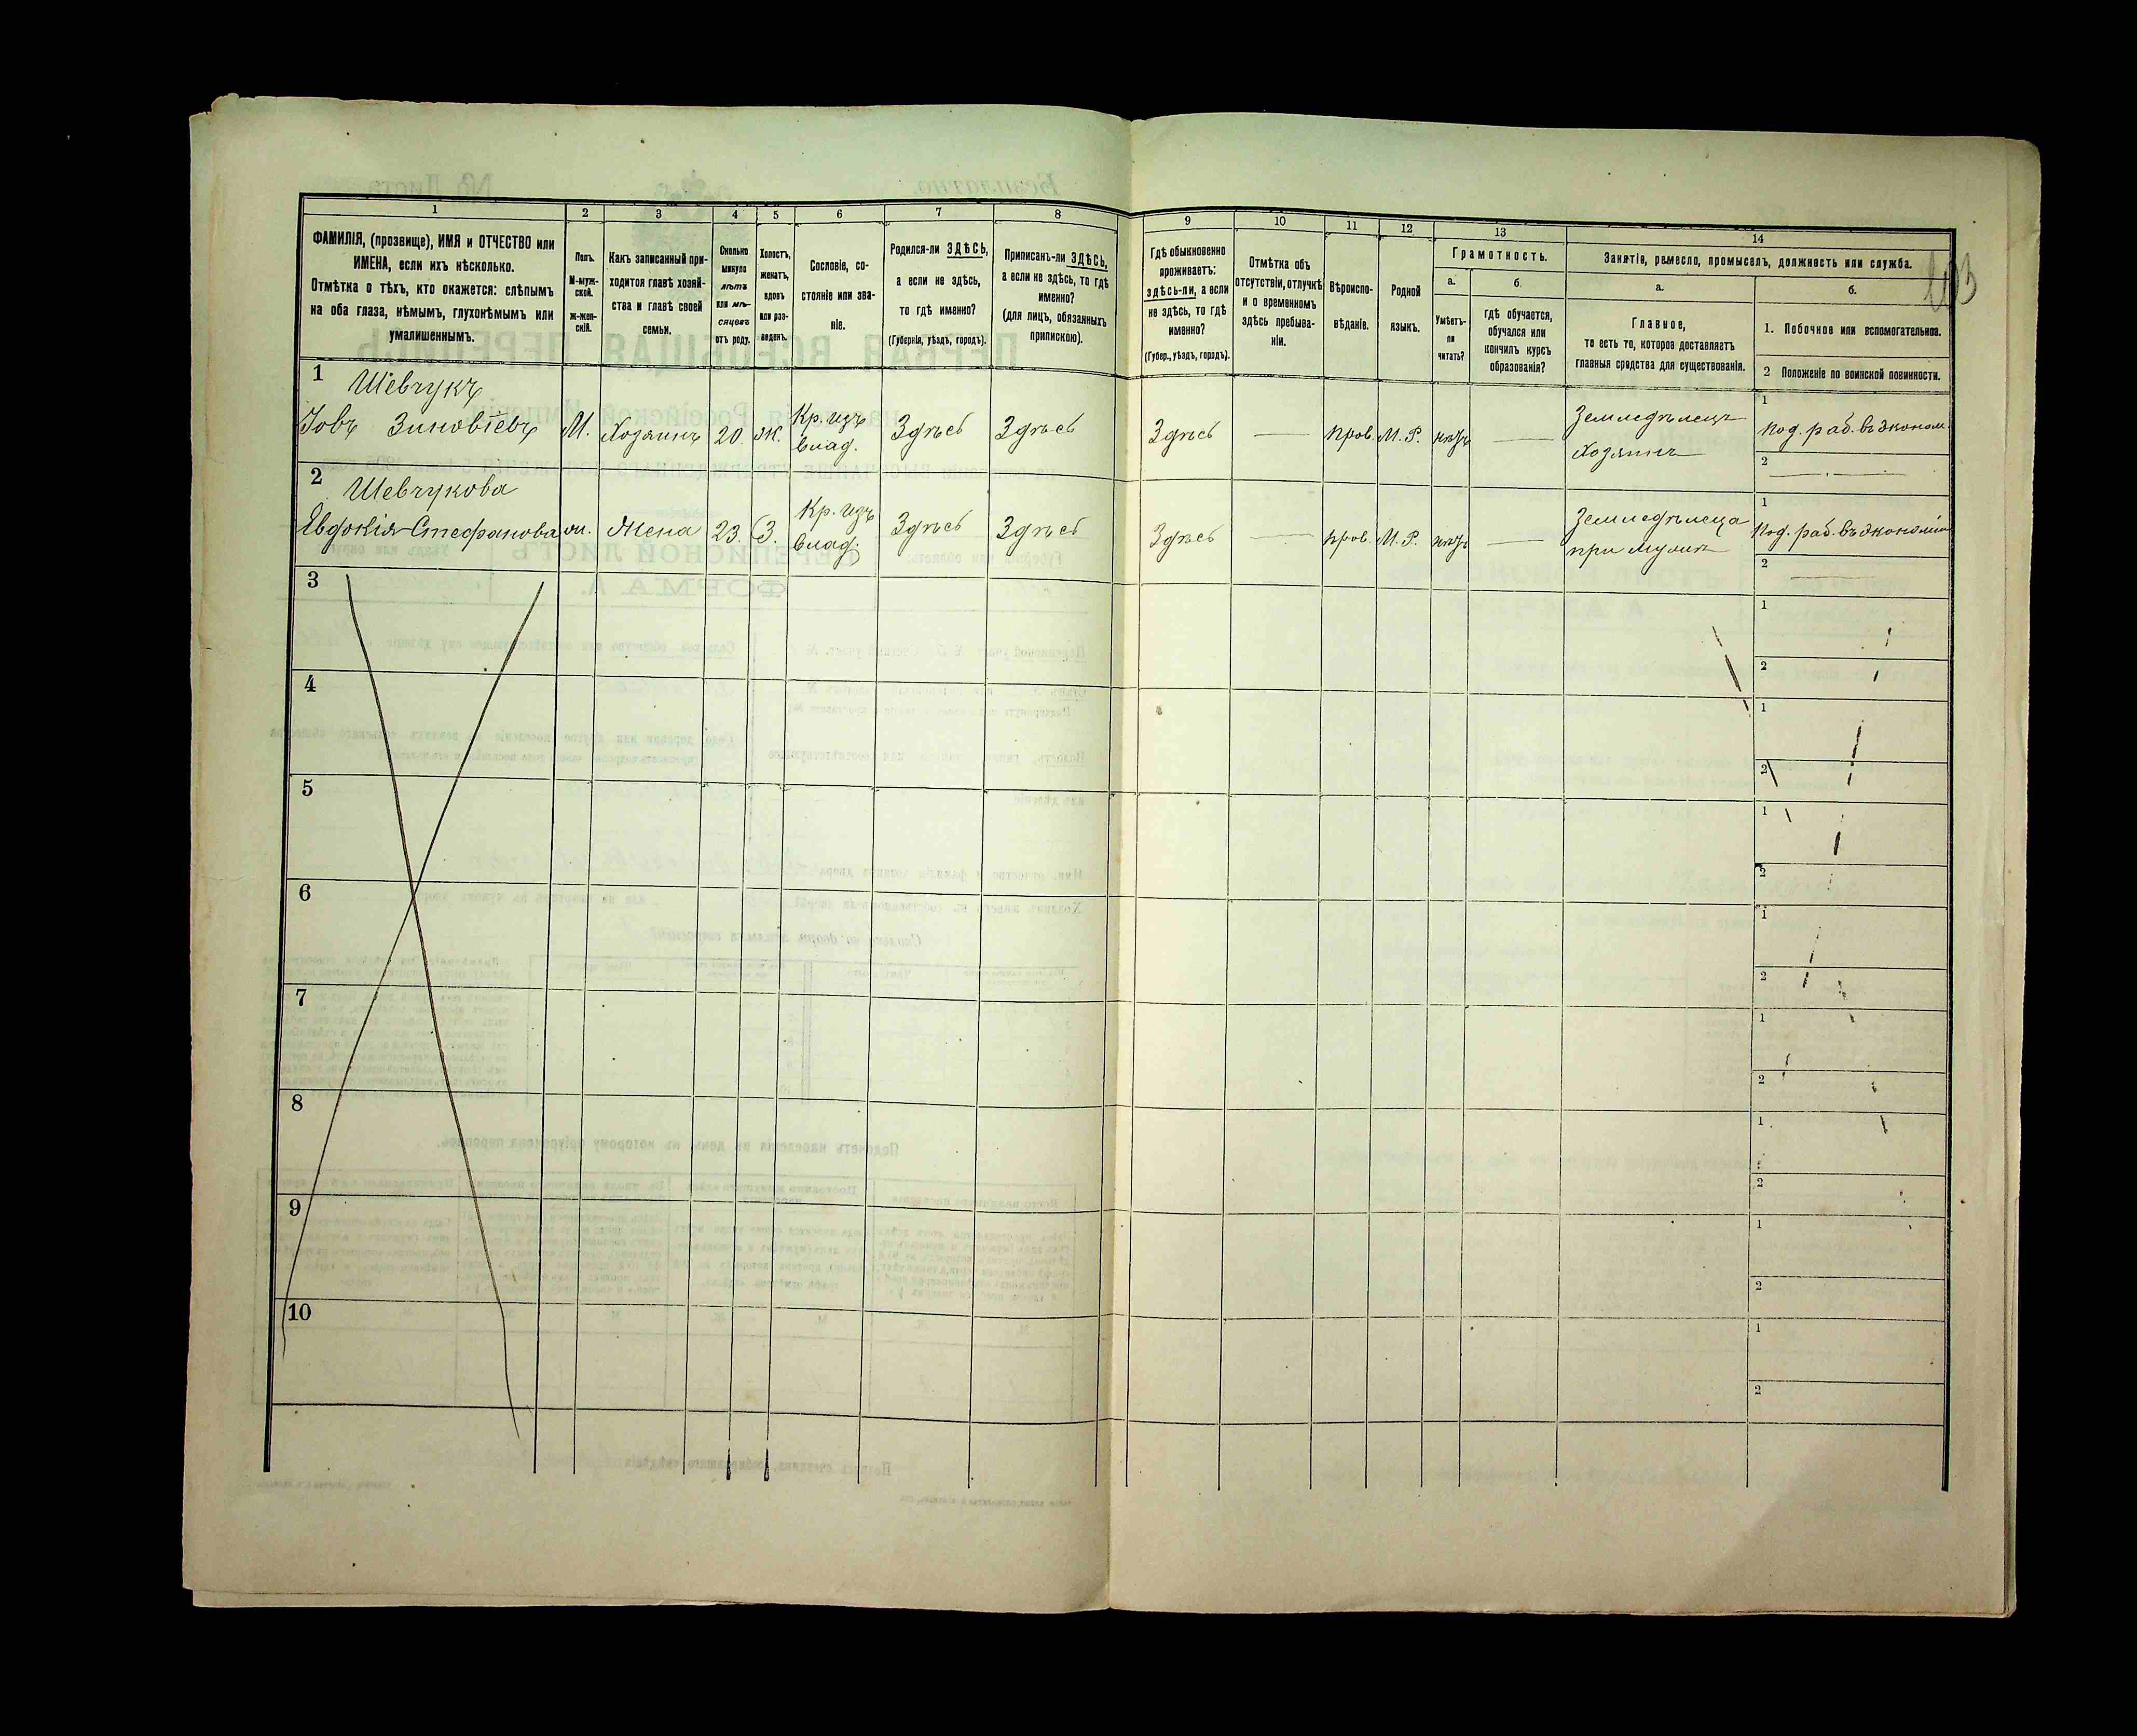 1 2 3 4 5 6 7 8 9 10 11 12 13 14
ФАМИЛІЯ, (прозвище), ИМЯ и ОТЧЕСТВО или
ИМЕНА, если ихъ нѣсколько.
Отмѣтка о тѣхъ, кто окажется: слѣпымъ
на оба глаза, нѣмымъ, глухонѣмымъ или
умалишеннымъ.
Полъ.
М-муж-
ской.
ж-жен-
скій.
Какъ записанный при-
ходится главѣ хозяй-
ства и главѣ своей
семьи.
Сколько
минуло
лѣтъ
или мѣ-
сяцевъ
отъ роду.
Холостъ,
женатъ,
вдовъ
или раз-
веденъ.
Сословіе, со-
стояніе или зва-
ніе.
Родился-ли ЗДѢСЬ,
а если не здѣсь,
то гдѣ именно?
(Губернія, уѣздъ, городъ).
Приписанъ-ли ЗДѢСЬ,
а если не здѣсь, то гдѣ
именно?
(для лицъ, обязанныхъ
припискою).
Гдѣ обыкновенно
проживаетъ:
здѣсь-ли, а если
не здѣсь, то гдѣ
именно?
(Губер., уѣздъ, городъ).
Отмѣтка объ
отсутствіи, отлучкѣ
и о временномъ
здѣсь пребыва-
ніи.
Вѣроиспо-
вѣданіе.
Родной
языкъ.
Грамотность.
а.
Умѣетъ-
ли
читать?
б.
гдѣ обучается,
обучался или
кончилъ курсъ
образованія?
Занятіе, ремесло, промыселъ, должность или служба.
а.
Главное,
то есть то, которое доставляетъ
главныя средства для существованія.
б.
1. Побочное или вспомогательное.
2 Положеніе по воинской повинности.
1 Шевчукъ
Іовъ Зиновіевъ М. Хозяинъ 20. ж. Кр. изъ влад. Здѣсь Здѣсь Здѣсь — прав. М. Р. нѣтъ — Земледѣлецъ Хозяинъ
1 Под. раб. въ эконом.
2 —
2 Шевчукова
Евдокія Стефанова ж. Жена 23. З. Кр. изъ влад. Здѣсь Здѣсь Здѣсь — прав. М. Р. нѣтъ — Земледѣлеца при мужѣ
1 Под. раб. въ экономіи
2
3
1
2
4
1
2
5
1
2
6
1
2
7
1
2
8
1
2
9
1
2
10
1
2